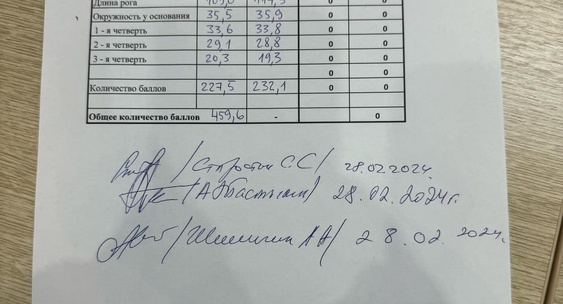 Длина рога 0 0
Окружность у основания 35,5 35,9 0 0
1 - я четверть 33,6 33,8 0 0
2 - я четверть 29,1 28,8 0 0
3 - я четверть 20,3 19,3 0 0
0 0
Количество баллов 227,5 232,1 0 0
Общее количество баллов 459,6 - 0
/ С.С/ 28.02.2024г.
28.02.2024г.
/ / 28.02.2024г.